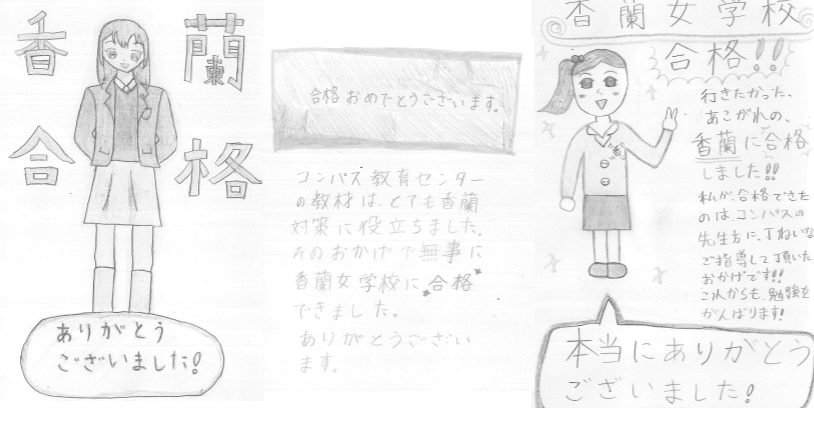 香蘭
合格
ありがとう
ございました!
合格おめでとうございます。
コンパス教育センター
の教材は、とても香蘭
対策に役立ちました。
そのおかげで無事に
香蘭女学校に合格
できました。
ありがとうござい
ます。
香蘭女学校
合格!!
行きたかった、
あこがれの、
香蘭に合格
しました!!
私が、合格できた
のは、コンパスの
先生方に、丁ねいな
ご指導して頂いた
おかげです!!
これからも、勉強を
がんばります!
本当にありがとう
ございました!